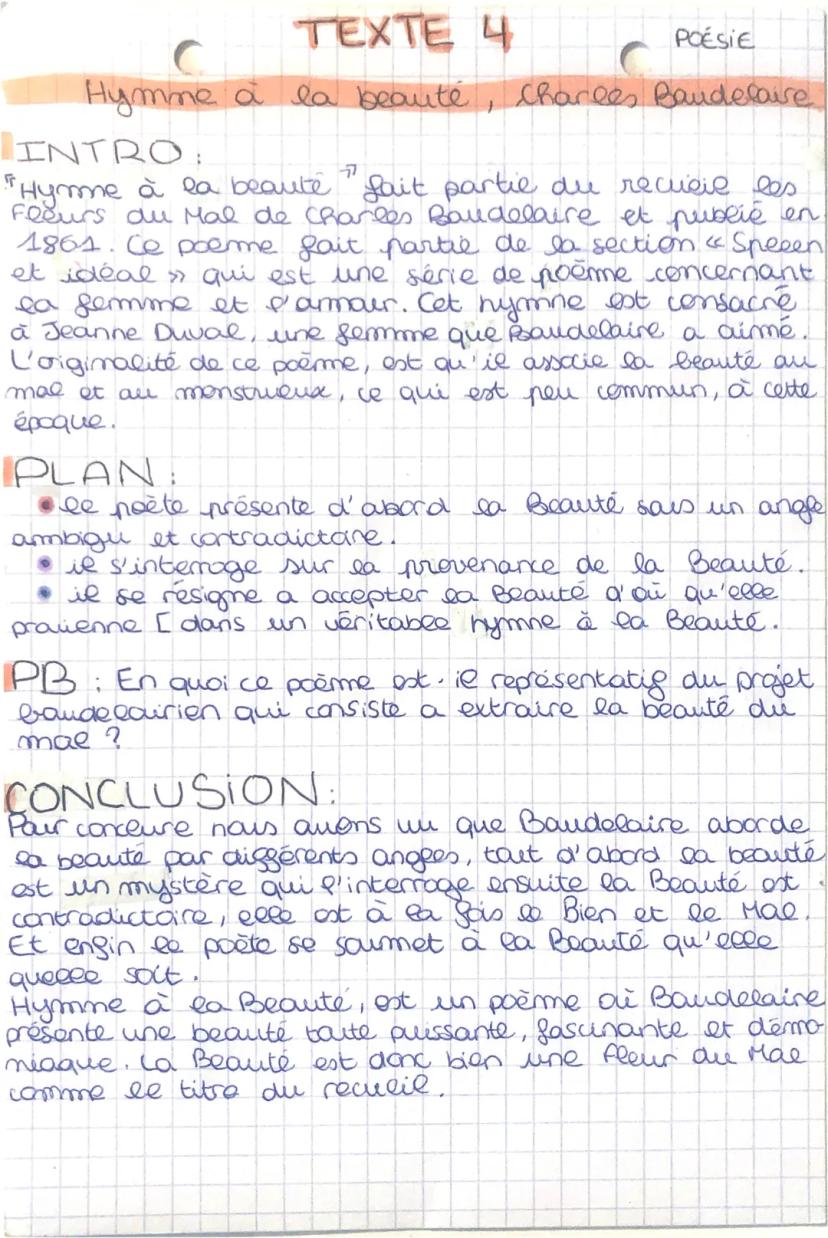 TEXTE 4
POÉSIE
Hymne à la beauté, Charles Baudelaire
INTRO :
"Hymne à la beauté" fait partie du recueil les
Fleurs du Mal de Charles Baudelaire et publié en
1861. Ce poème fait partie de la section « Spleen
et idéal » qui est une série de poème concernant
la femme et l'amour. Cet hymne est consacré
à Jeanne Duval, une femme que Baudelaire a aimé.
L'originalité de ce poème, est qu'il associe la beauté au
mal et au monstrueux, ce qui est peu commun, à cette
époque.
PLAN :
• le poète présente d'abord la Beauté sous un angle
ambigu et contradictoire.
• il s'interroge sur la provenance de la Beauté.
• il se résigne a accepter la Beauté d'où qu'elle
provienne [ dans un véritable hymne à la Beauté.
PB : En quoi ce poème est-il représentatif du projet
baudelairien qui consiste a extraire la beauté du
mal ?
CONCLUSION :
Pour conclure nous avons vu que Baudelaire aborde
la beauté par différents angles, tout d'abord la beauté
est un mystère qui l'interroge ensuite la Beauté est
contradictoire, elle est à la fois le Bien et le Mal.
Et enfin le poète se soumet à la Beauté qu'elle
quelle soit.
Hymne à la Beauté, est un poème où Baudelaire
présente une beauté toute puissante, fascinante et démo-
niaque. La Beauté est donc bien une fleur du Mal
comme le titre du recueil.